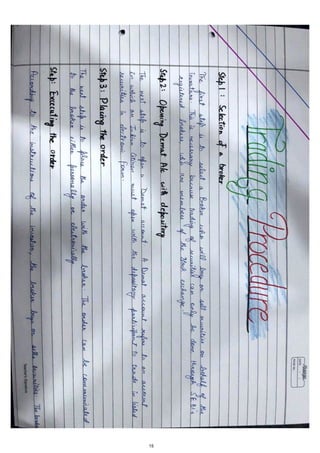 Trading Procedure
Step 1 : Selection of a broker
The first step is to select a Broker who will buy or sell securities on behalf of the
investor. This is necessary because trading of securities can only be done through SEBI's
registered brokers who are members of the stock exchange.
Step 2 : Opening Demat A/c with depository
The next step is to open a Demat account. A Demat account refers to an account
in which an Indian Citizen must open with the depository participant to trade in listed
securities in electronic form.
Step 3 : Placing the order
The next step is to place the order with the broker. The order can be communicated
to the broker either personally or electronically.
Step: Executing the order
According to the instructions of the investor, the broker buys or sells securities. The broker
Teacher's Signature
18